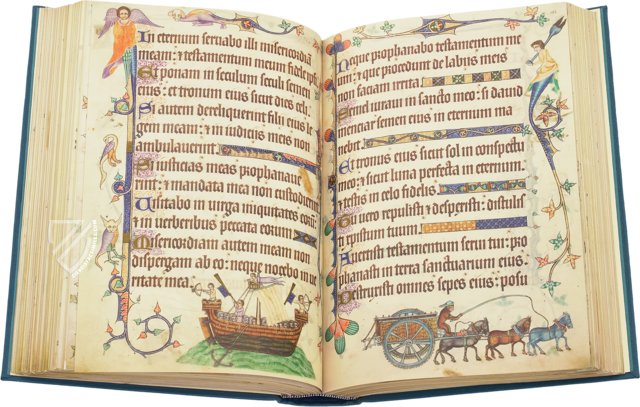 In eternum seruabo illi misericordiã
meam: ⁊ testamentum meum fidele ipſi
Et ponam in seculum seculi semen
eius: ⁊ tronum eius sicut dies celi
Si autem dereliquerint filii eius le
gem meam: ⁊ in iudiciis meis non
ambulauerint
Si iusticias meas prophanaue
rint: ⁊ mandata mea non custodierint
Uisitabo in uirga iniquitates eorũ:
⁊ in uerberibus peccata eorum
Misericordiam autem meam non
dispergam ab eo: neque nocebo in ue
ritate mea
Neque prophanabo testamentum me
um: ⁊ que procedunt de labijs meis
non faciam irrita
Semel iuraui in sancto meo: si dauid
menciar: semen eius in eternum ma
nebit
Et tronus eius sicut sol in conspectu
meo: ⁊ sicut luna perfecta in eternum:
⁊ testis in celo fidelis
Tu uero repulisti ⁊ despexisti: distulisti
xpistum tuum
Auertisti testamentum serui tui: pro
phanasti in terra sanctuarium eius
Destruxisti omnes sepes eius: posu